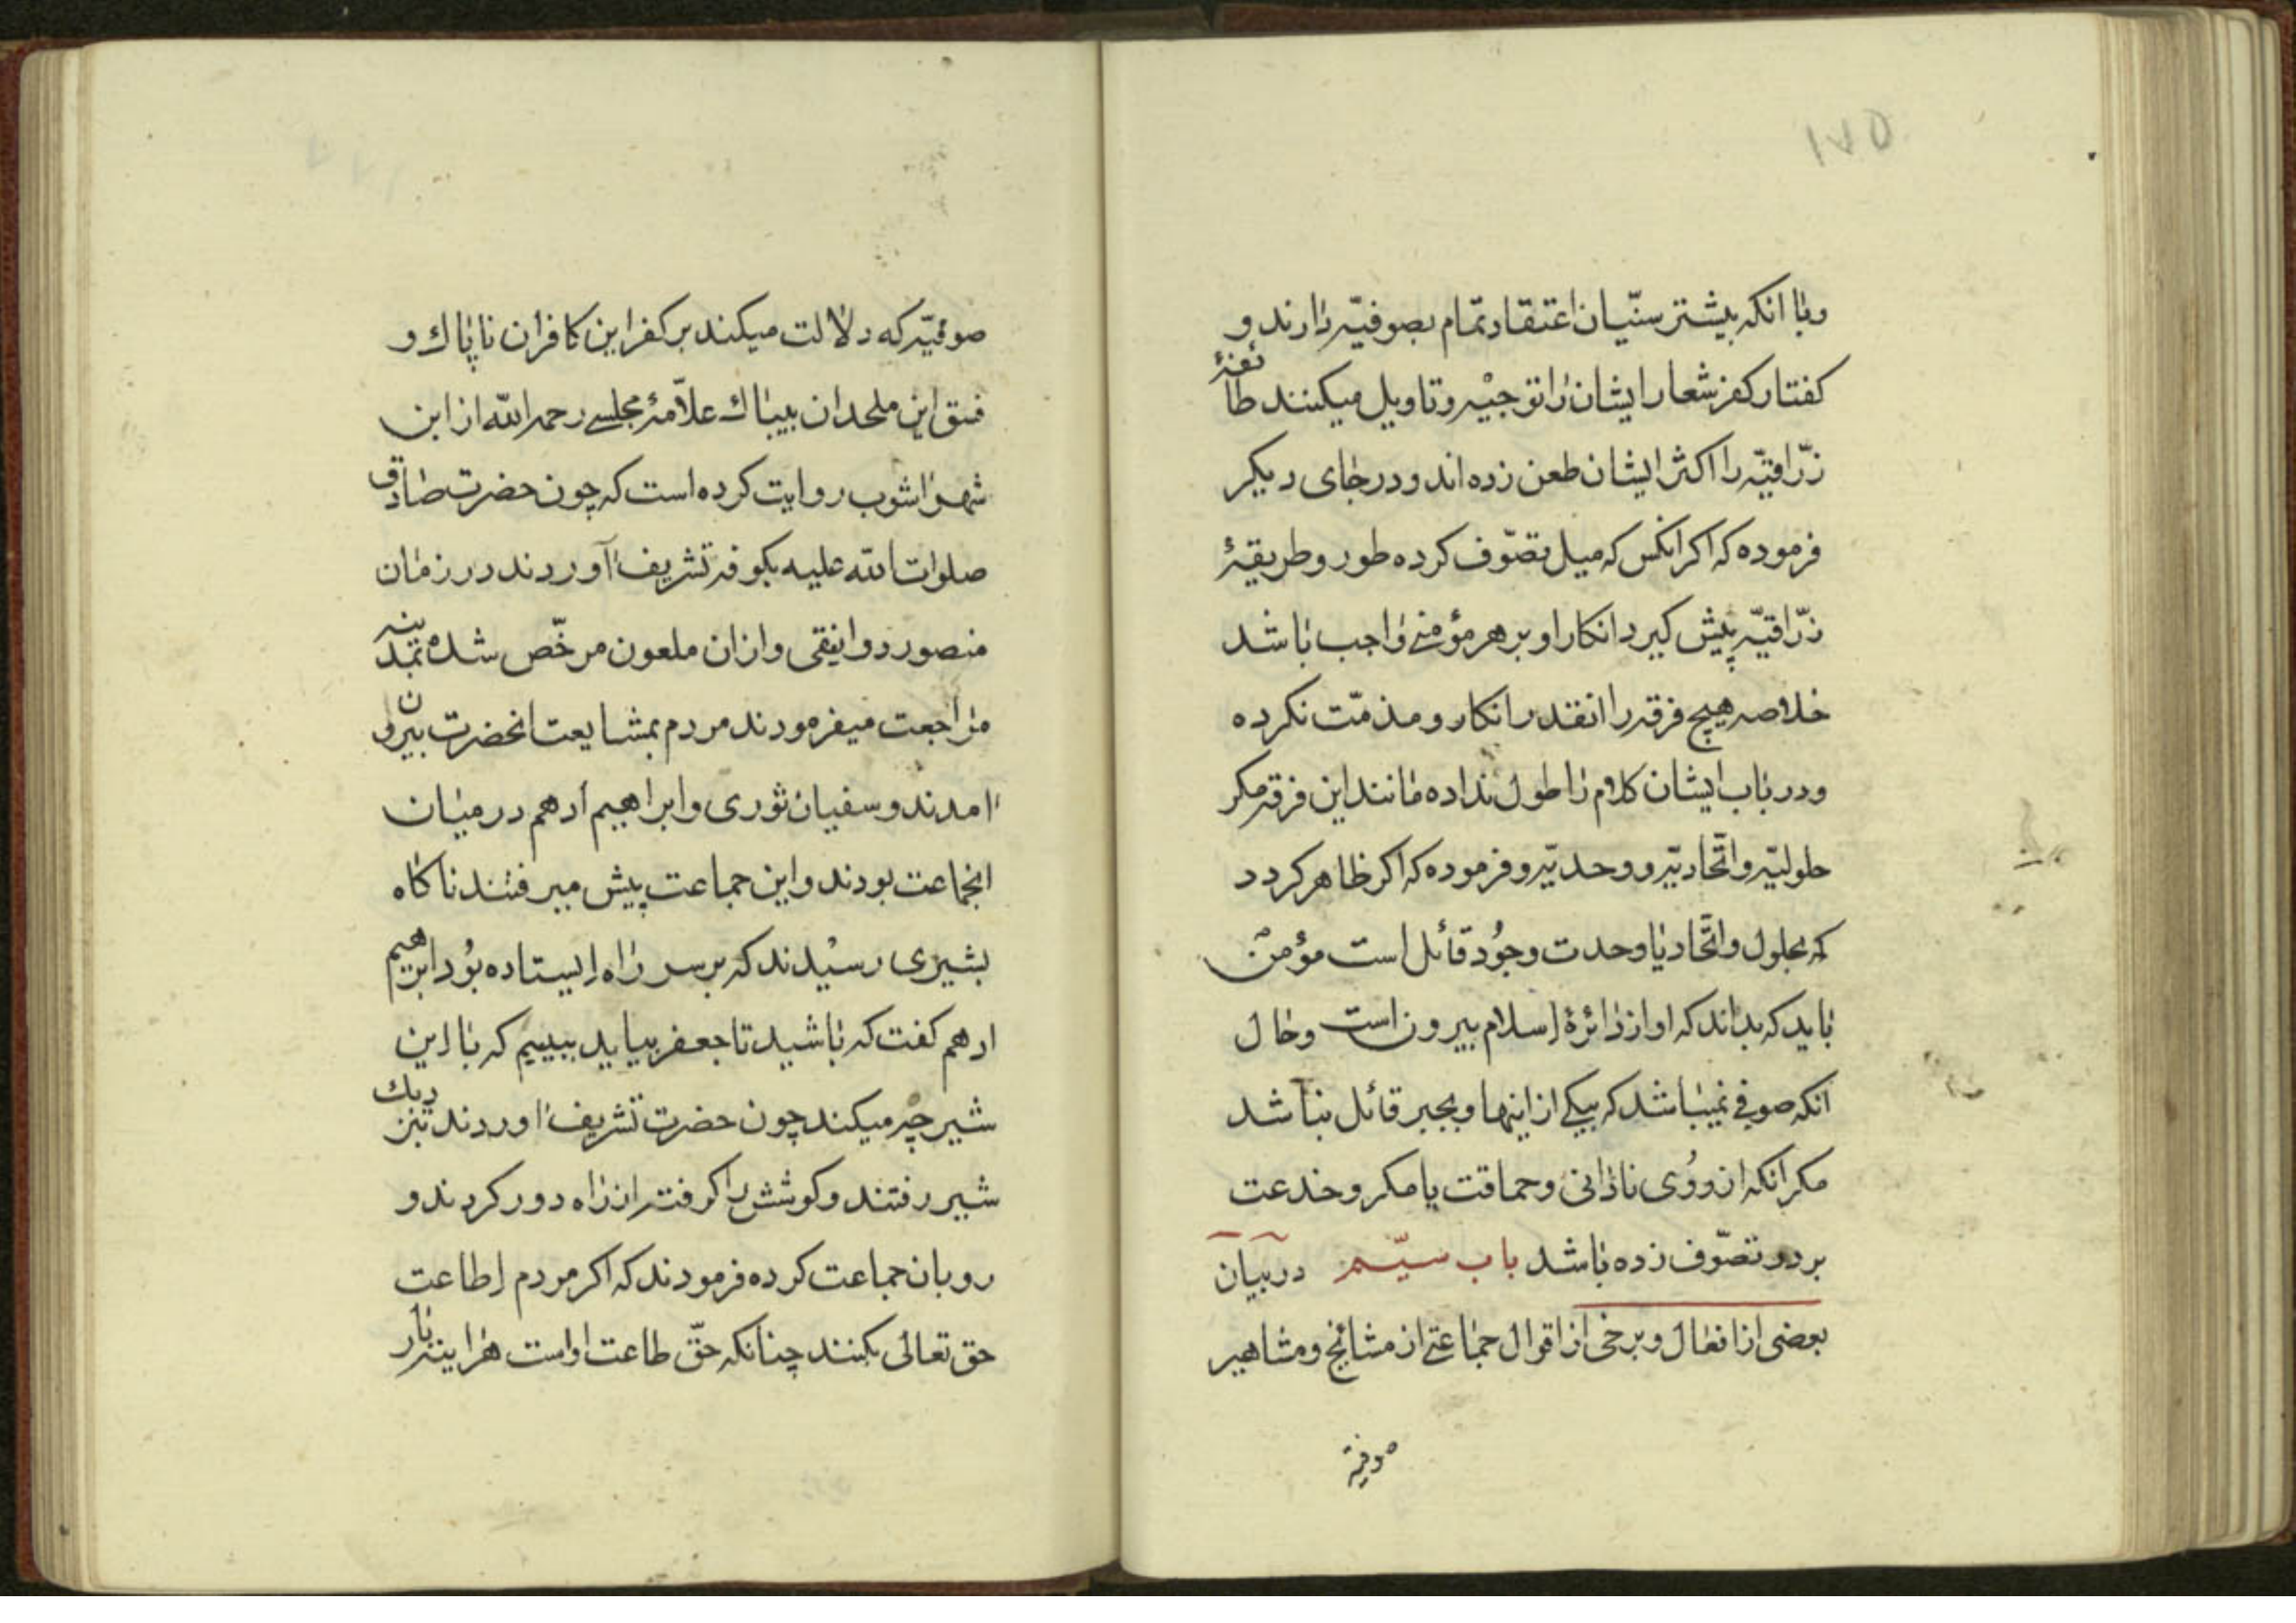 ۱۷۵
وباانکه بیشتر سنّیان اعتقاد تمام بصوفیّه دارند و
کفتار کفرشعار ایشان را توجیه وتاویل میکنند طائفهٔ
زرّاقیّه را اکثر ایشان طعن زده اند ودر جای دیکر
فرموده که اکر انکس که میل بتصوّف کرده طور وطریقهٔ
زرّاقیّه پیش کیرد انکار او بر هر مؤمنی واجب باشد
خلاصه هیچ فرقه را انقدر انکار ومذمّت نکرده
ودر باب ایشان کلام را طول نداده مانند این فرقه مکر
حلولیّه واتّحادیّه ووحدیّه وفرموده که اکر ظاهر کردد
که بحلول واتّحاد یا وحدت وجُود قائل است مؤمن
باید که بداند که او از دائرهٔ اسلام بیرون است وحال
انکه صوفی نمیباشد که بیکی از اینها وبجبر قائل نباشد
مکر انکه از رُوی نادانی وحماقت یا مکر وخدعت
بر در تصوّف زده باشد باب سیّم در بیان
بعضی از افعال وبرخی از اقوال جماعتی از مشائخ ومشاهیر
صوفیّه
صوفیّه که دلالت میکند بر کفر این کافران ناپاک و
فسق این ملحدان بیباک علاّمهٔ مجلسے رحمه الله از ابن
شهراشوب روایت کرده است که چون حضرت صادق
صلوات الله علیه بکوفه تشریف آوردند در زمان
منصور دوانیقی وازان ملعون مرخّص شده بمدینه
مراجعت میفرمودند مردم بمشایعت انحضرت بیرون
امدند وسفیان ثوری وابراهیم ادهم درمیان
انجماعت بودند واین جماعت پیش میرفتند ناکاه
بشیری رسیْدند که بر سر راه ایستاده بوُد ابرهیم
ادهم کفت که باشید تا جعفر بیاید ببینیم که با این
شیر چه میکند چون حضرت تشریف اوردند بنزدیک
شیر رفتند وکوشش را کرفته از راه دور کردند و
رو بان جماعت کرده فرمودند که اکر مردم اطاعت
حق تعالی بکنند چنانکه حقّ طاعت اواست هراینه بار